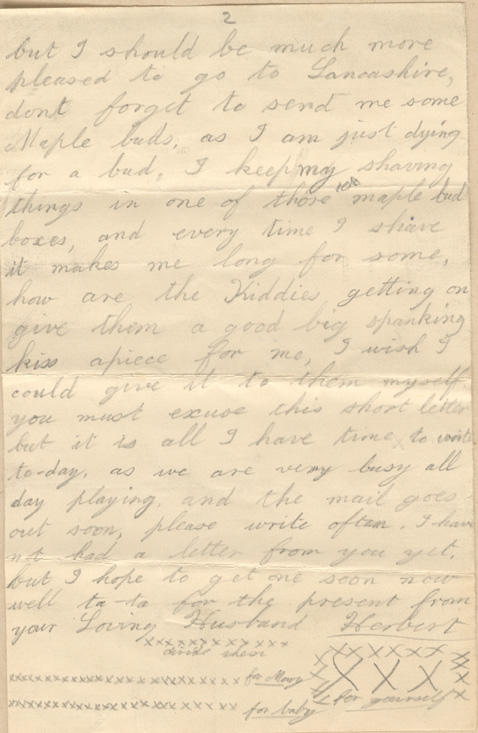 2
but I should be much more
pleased to go to Lancashire,
dont forget to send me some
Maple buds, as I am just dying
for a bud, I keep my shaving
things in one of those 10¢ maple bud
boxes, and every time I shave
it makes me long for some,
how are the Kiddies getting on
give them a good big spanking
kiss apiece for me, I wish I
could give it to them myself.
you must excuse this short letter
but it is all I have time to write
to-day, as we are very busy all
day playing, and the mail goes
out soon, please write often. I have
not had a letter from you yet,
but I hope to get one soon now
well ta-ta for the present from
your Loving Husband Herbert
xxxxxxxxxxxxxxx
divide them
xxxxxxxxxxxxxxxxxxxxxxxxx for Mary
xxxxxxxxxxxxxxxxxxxxxxxxx for baby
X X X for yourself